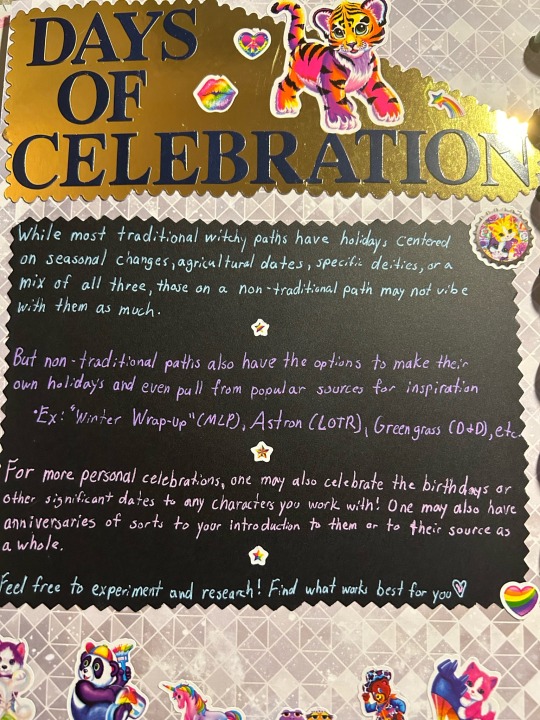 DAYS
OF
CELEBRATION
While most traditional witchy paths have holidays centered
on seasonal changes, agricultural dates, specific deities, or a
mix of all three, those on a non-traditional path may not vibe
with them as much.
But non-traditional paths also have the options to make their
own holidays and even pull from popular sources for inspiration
*Ex: "Winter Wrap-up" (MLP), Astron (LOTR), Greengrass (D&D), etc.
For more personal celebrations, one may also celebrate the birthdays or
other significant dates to any characters you work with! One may also have
anniversaries of sorts to your introduction to them or to their source as
a whole.
Feel free to experiment and research! Find what works best for you